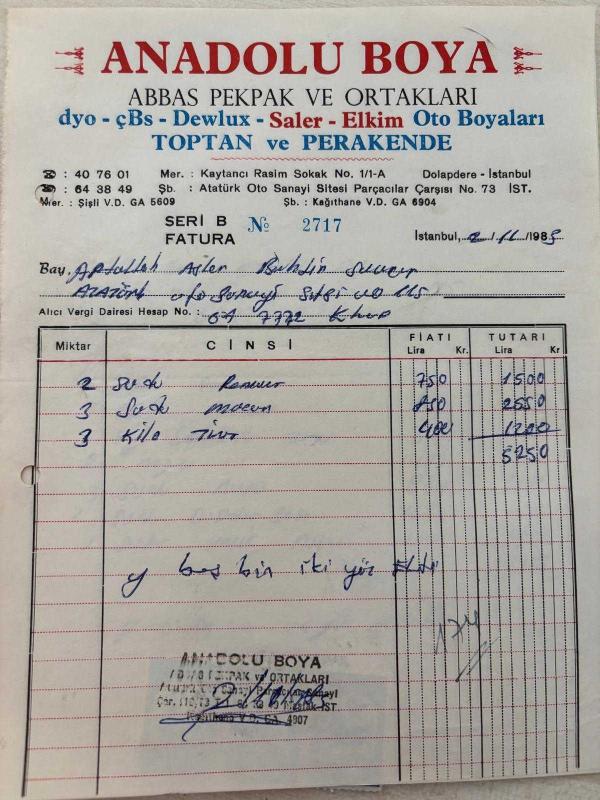 ANADOLU BOYA
ABBAS PEKPAK VE ORTAKLARI
dyo - çBs - Dewlux - Saler - Elkim Oto Boyaları
TOPTAN ve PERAKENDE
☎ : 40 76 01 Mer. : Kaytancı Rasim Sokak No. 1/1-A Dolapdere - İstanbul
☎ : 64 38 49 Şb. : Atatürk Oto Sanayi Sitesi Parçacılar Çarşısı No. 73 İST.
Mer. : Şişli V.D. GA 5609 Şb. : Kağıthane V.D. GA 6904
SERİ B № 2717
FATURA İstanbul, 2/11/1983
Bay,
Alıcı Vergi Dairesi Hesap No. : GA 7772
Miktar CİNSİ FİATI Lira Kr. TUTARI Lira Kr
2 750 1500
3 850 2550
3 Kilo 400 1200
5250
y beş bin iki yüz elli
174
ANADOLU BOYA
PEKPAK ve ORTAKLARI
Sanayi Parçacılar Sanayi
Maslak-İST.
Kağıthane V.D. GA. 4907